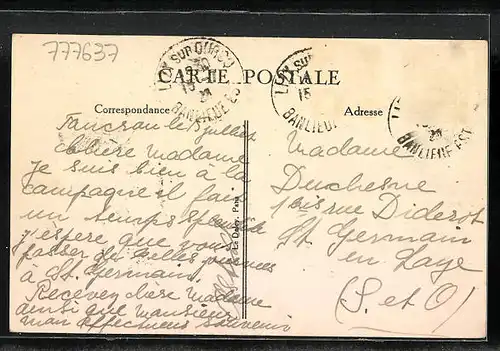 777637
CARTE POSTALE
Correspondance
Adresse
LIZY SUR OURCQ
15
BANLIEUE EST
LIZY SUR
15
BANLIEUE
LI
BANLIEUE EST
le 8 juillet
chère madame
je suis bien à la
campagne il fait
un temps splendide
j'espère que vous
passez de belles journées
à St. Germain.
Recevez chère Madame
ainsi que monsieur
mon affectueux souvenir
Madame
Duchesne
1 bis rue Diderot
St Germain
en Laye
(S. et O)
Le Deley Paris